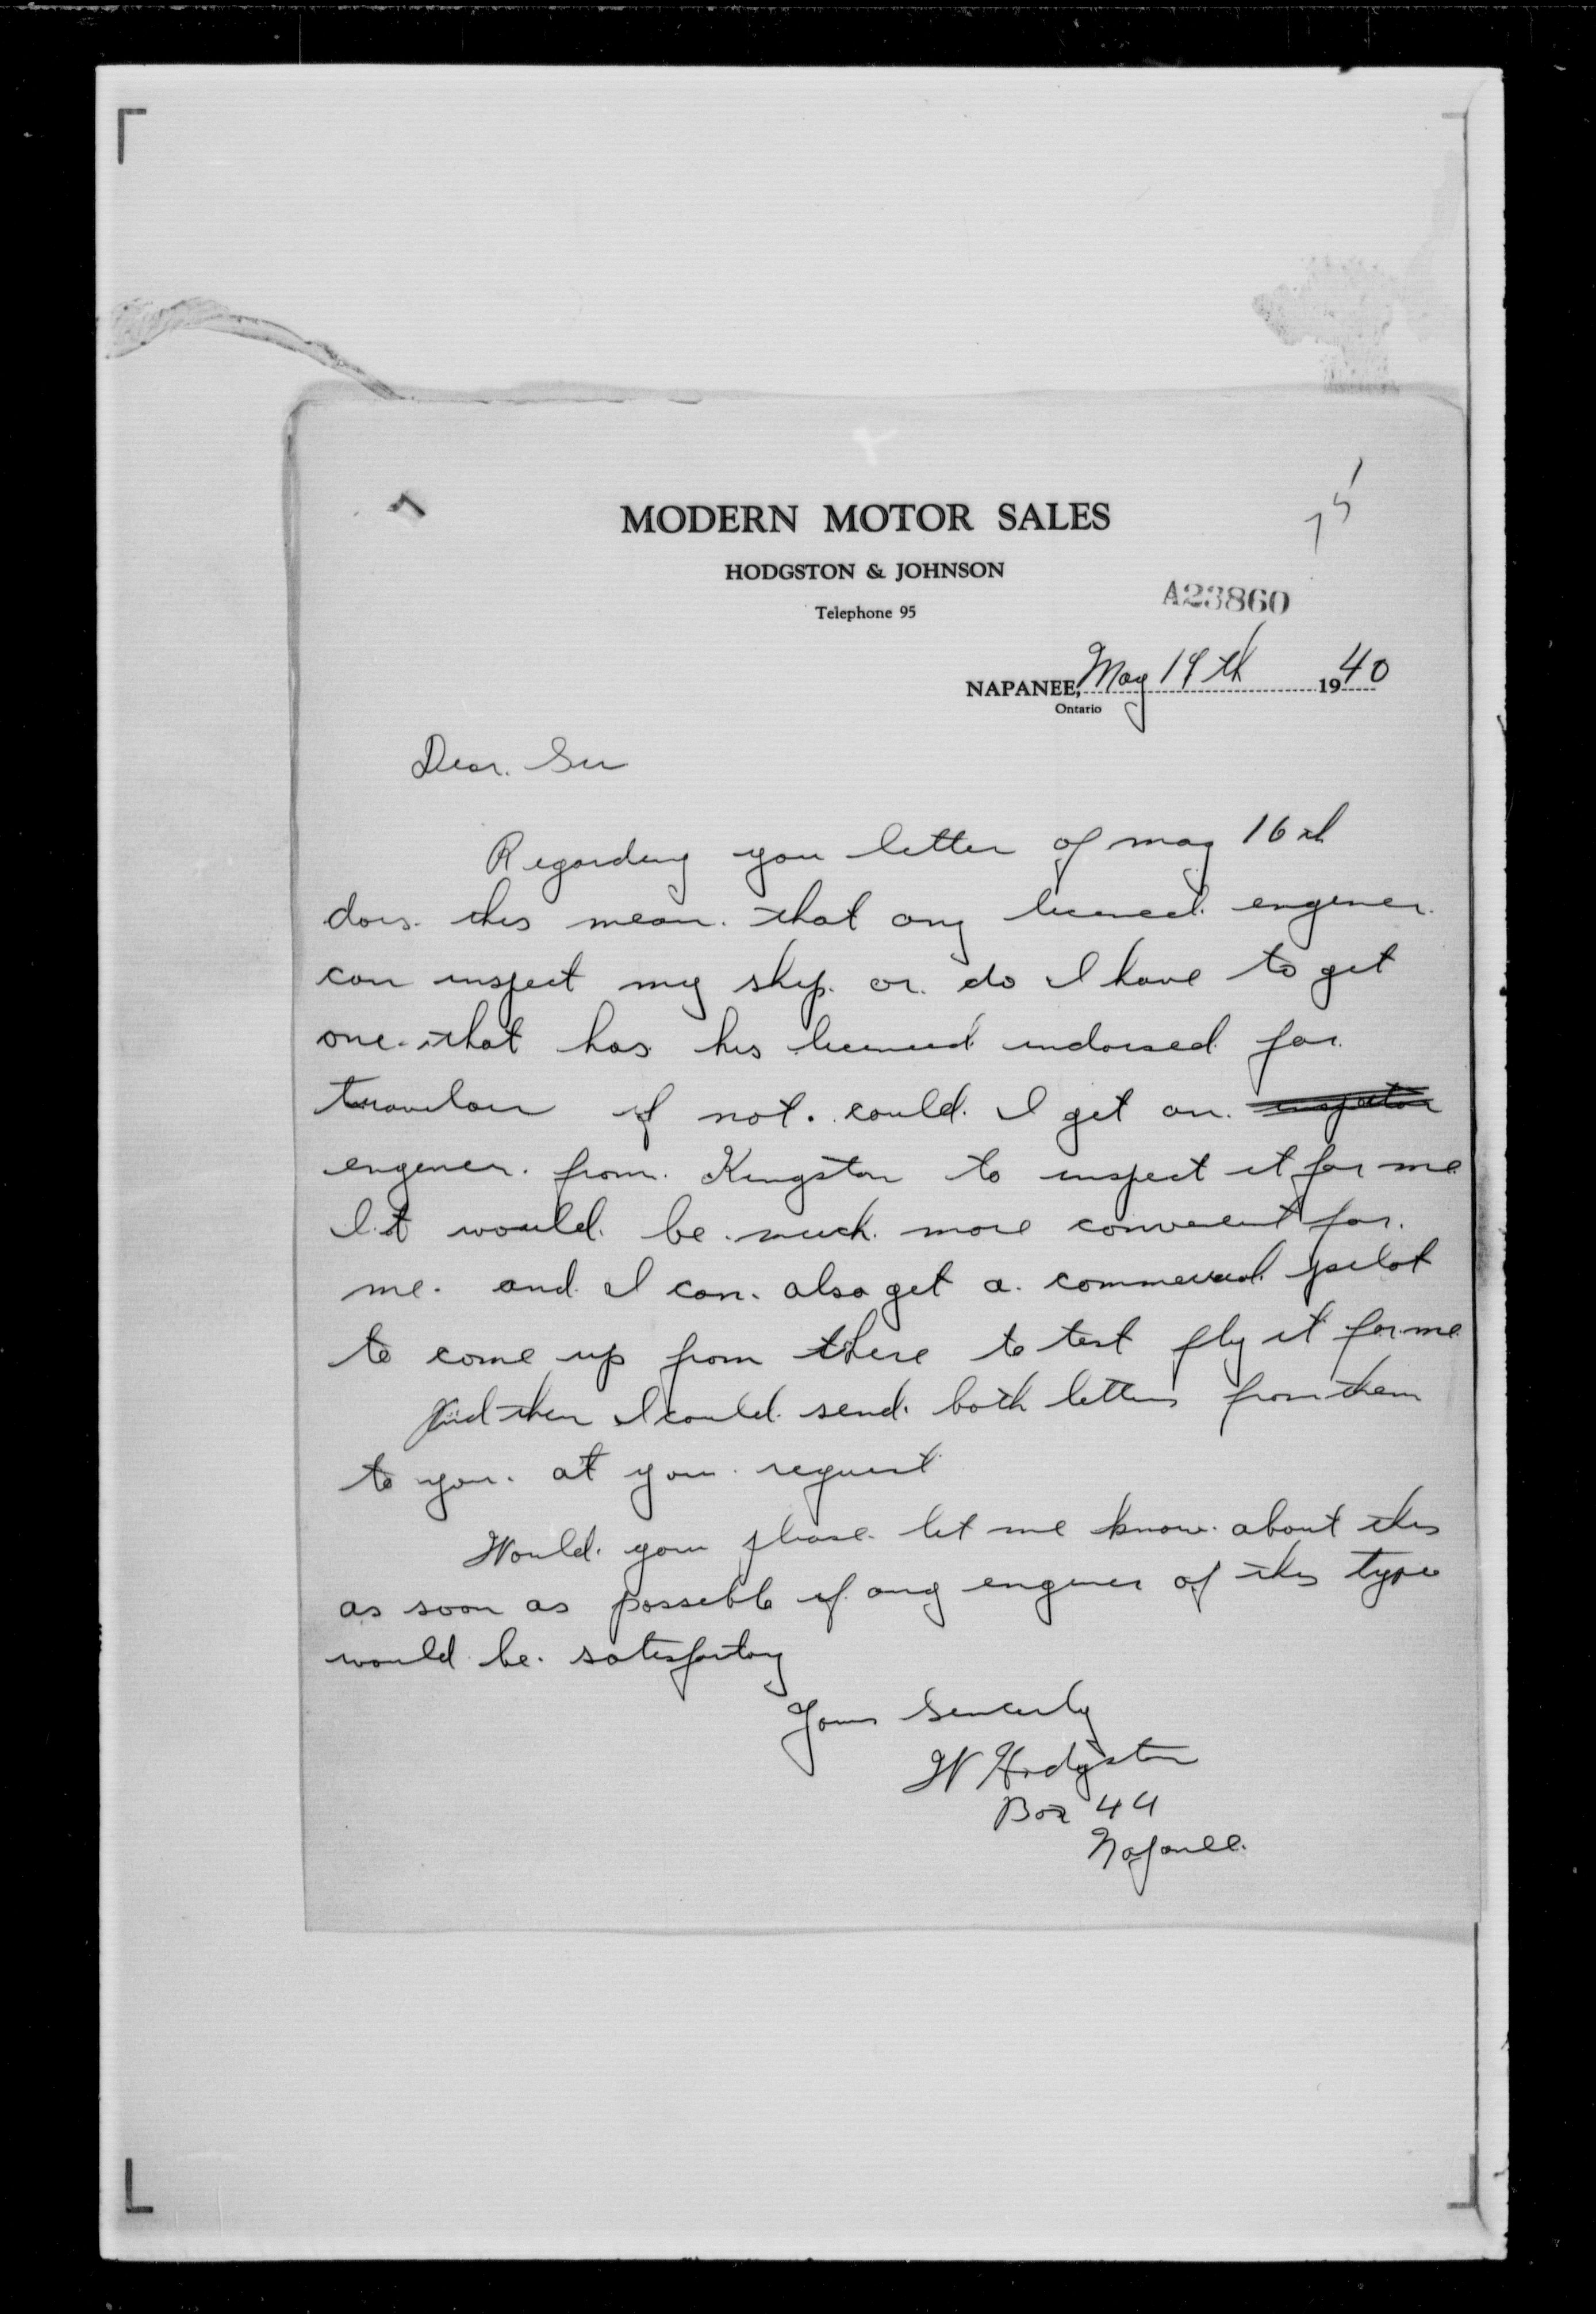 75
MODERN MOTOR SALES
HODGSTON & JOHNSON
A23860
Telephone 95
NAPANEE, May 19th 1940
Ontario
Dear. Sir
Regarding you letter of may 16th
does. this mean. that any licenced. enginer.
can inspect my ship. or. do I have to get
one. that has his licenced indorsed for.
travelair if not. could. I get an. inspector
enginer. from. Kingston to inspect it for me
It would. be. much. more convenient for.
me. and. I can. also get a. commercial. pilot
to come up from there to test fly it for me
And then I could. send. both letters from them
to you. at your. request
Would. you please. let me know. about this
as soon as possible if. any enginer of this type
would be. satisfactory
Yours Sincerly
W Hodgston
Box 44
Napanee.